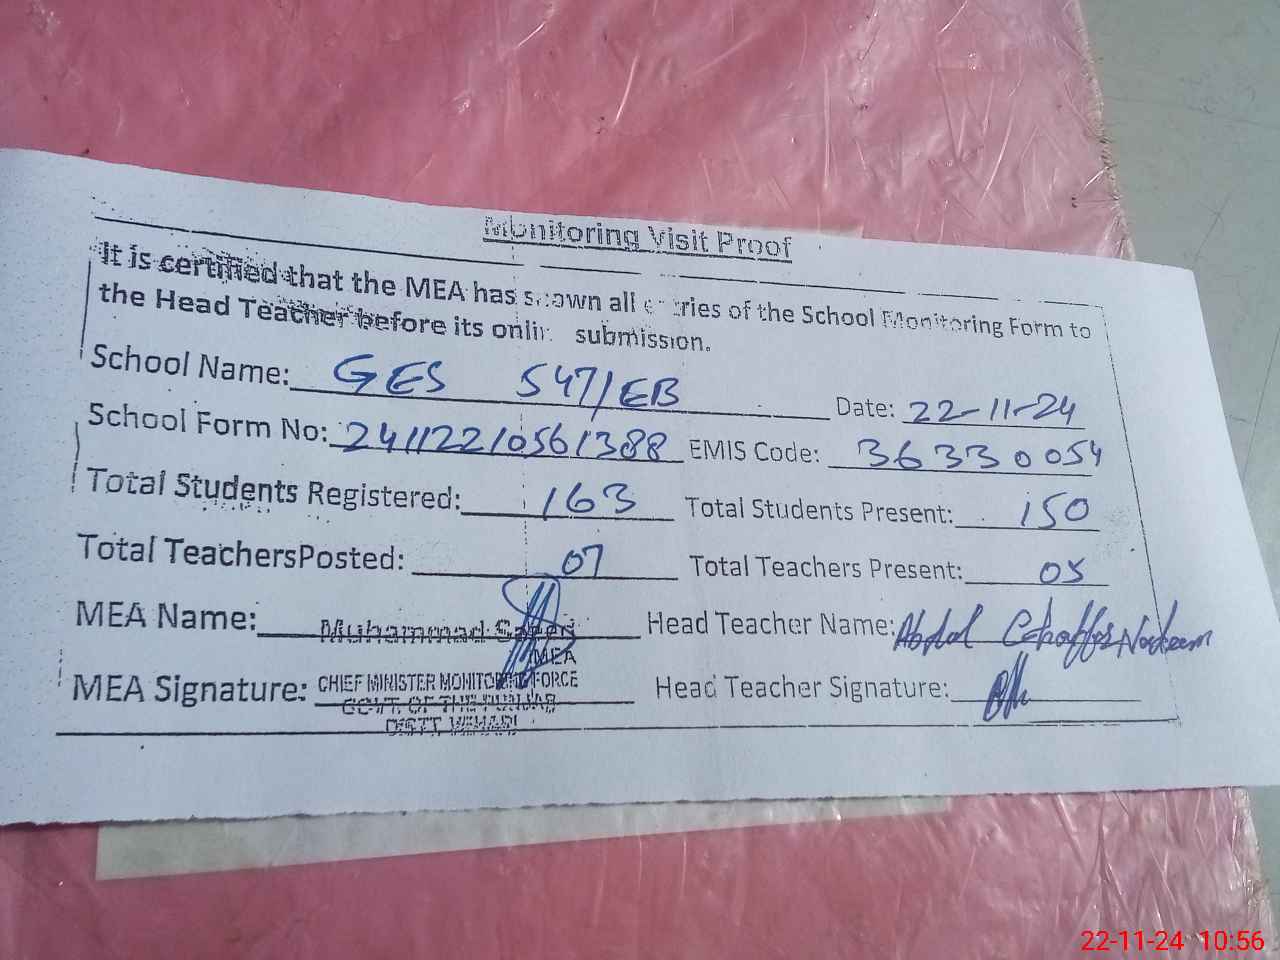 Monitoring Visit Proof
It is certified that the MEA has shown all entries of the School Monitoring Form to
the Head Teacher before its online submission.
School Name: GES 547/EB Date: 22-11-24
School Form No: 24112210561388 EMIS Code: 36330054
Total Students Registered: 163 Total Students Present: 150
Total TeachersPosted: 07 Total Teachers Present: 05
MEA Name: Muhammad Saeed Head Teacher Name: Abdul Ghaffar Nadeem
MEA
MEA Signature: CHIEF MINISTER MONITORING FORCE Head Teacher Signature:
GOVT. OF THE PUNJAB
DISTT. VEHARI
22-11-24 10:56